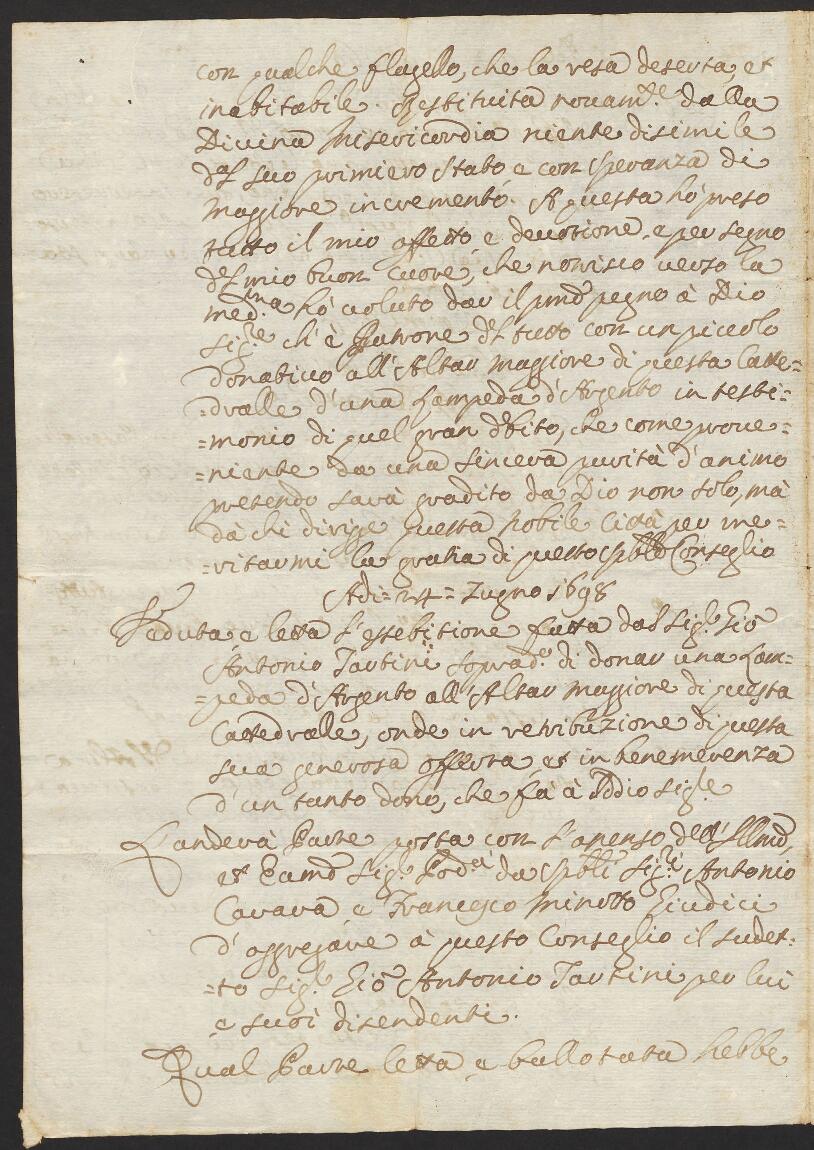 con qualche flagello, che la resa deserta, et
inabitabile. Restituita novam.te dalla
Divina Misericordia niente disimile
dal suo primiero stato e con speranza di
Maggiore incremento. A questa hò preso
tutto il mio affetto e devotione, e per segno
del mio buon Cuore, che norisco verso la
med.ma hò voluto dar il pmo pegno à Dio
Sig.re ch'è Patrone del tutto con un piccolo
donativo all'Altar Maggiore di questa Catte=
=dralle d'una Lampeda d'Argento in testi=
=monio di quel gran debito, che come prove=
=niente da una sincera purità d'animo
pretendo sarà gradito da Dio non solo, mà
da chi dirige questa Nobile Città per me=
=ritarmi la gratia di questo Spble Conseglio
Adi = 24 = Zugno 1698
Veduta, e letta l'essebitione fatta dal Sig.r Gio
Antonio Tartini soprad.o di donar una Lam=
=peda d'Argento all'Altar Maggiore di questa
Cattedralle, onde in retribuzione di questa
sua generosa offerta, et in benemerenza
d'un tanto dono, che fà à Iddio Sig.re
L'anderà Parte posta con l'assenso dell'Illmo,
et Eccmo Sig.r Pod.à da Spbli Sig.ri Antonio
Carara, e Francesco Minotto Giudici
d'aggregare à questo Conseglio il sudet=
=to Sig.r Gio Antonio Tartini per lui
e suoi disendenti.
Qual Parte letta e ballotata hebbe